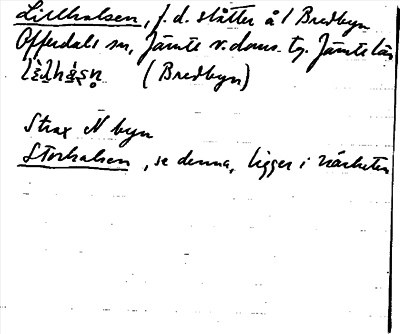 Lillhalsen, f.d. slåtter å/ Bredbyn
Offerdals sn, Jämte v. doms. tg. Jämtelän
(Bredbyn)
Strax N byn
Storhalsen, se denna, ligger i närheten